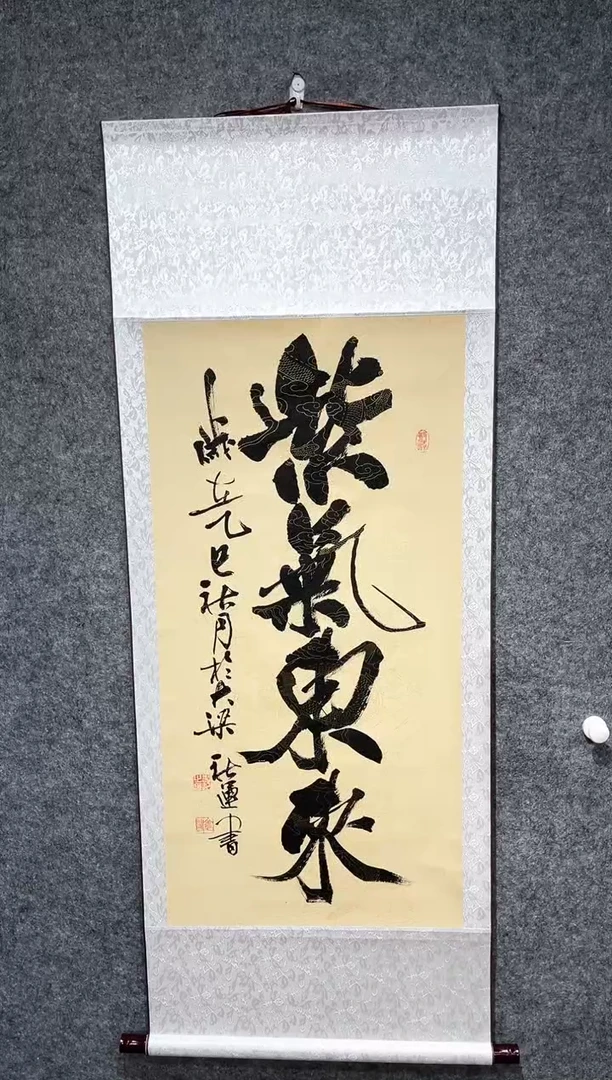 紫氣東來
歲在乙巳秋月於大梁
書